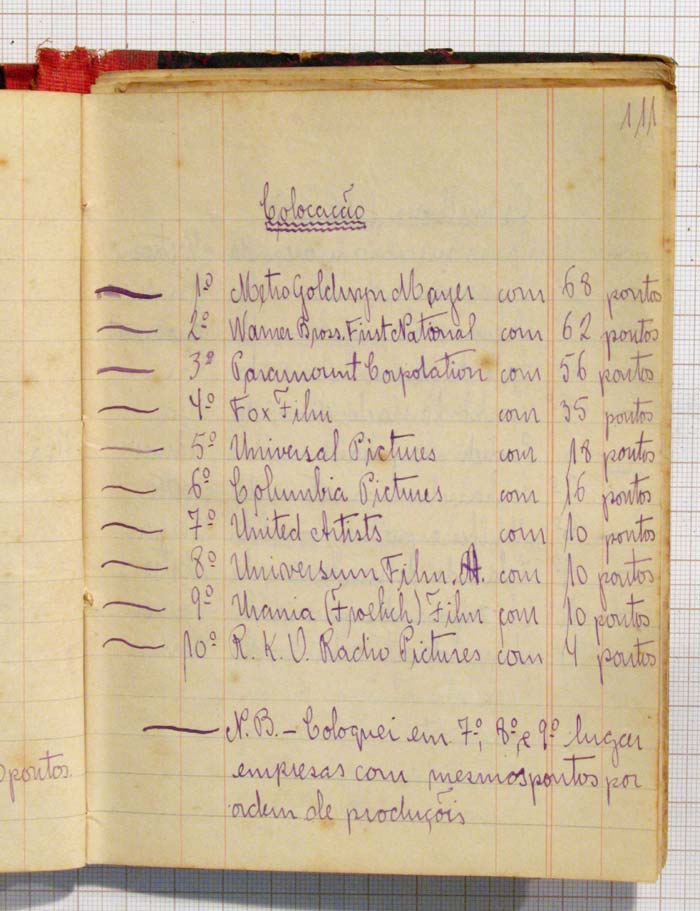 111
Colocacão
1º Metro Goldwyn Mayer com 68 pontos
2º Warner Bross. First National com 62 pontos
3º Paramount Corpolation com 56 pontos
4º Fox Film com 35 pontos
5º Universal Pictures com 18 pontos
6º Columbia Pictures com 16 pontos
7º United Artists com 10 pontos
8º Universum Film. A. com 10 pontos
9º Urania (Froelich) Film com 10 pontos
10º R. K. O. Radio Pictures com 4 pontos
N.B. – Coloquei em 7º, 8º, e 9º lugar
empresas com mesmos pontos por
ordem de produçõis
pontos.